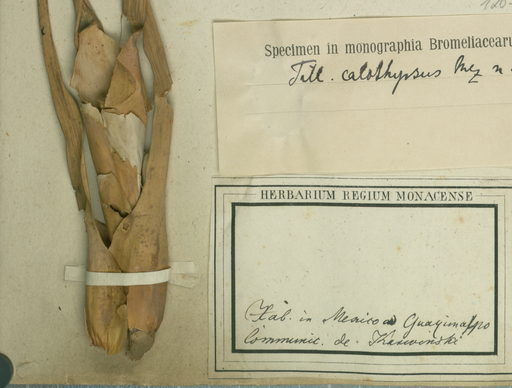 120
Specimen in monographia Bromeliacearu
Till. calothyrsus Mez n.
HERBARIUM REGIUM MONACENSE
Hab. in Mexico ad Guayimalpo
Communic. de. Karwinski